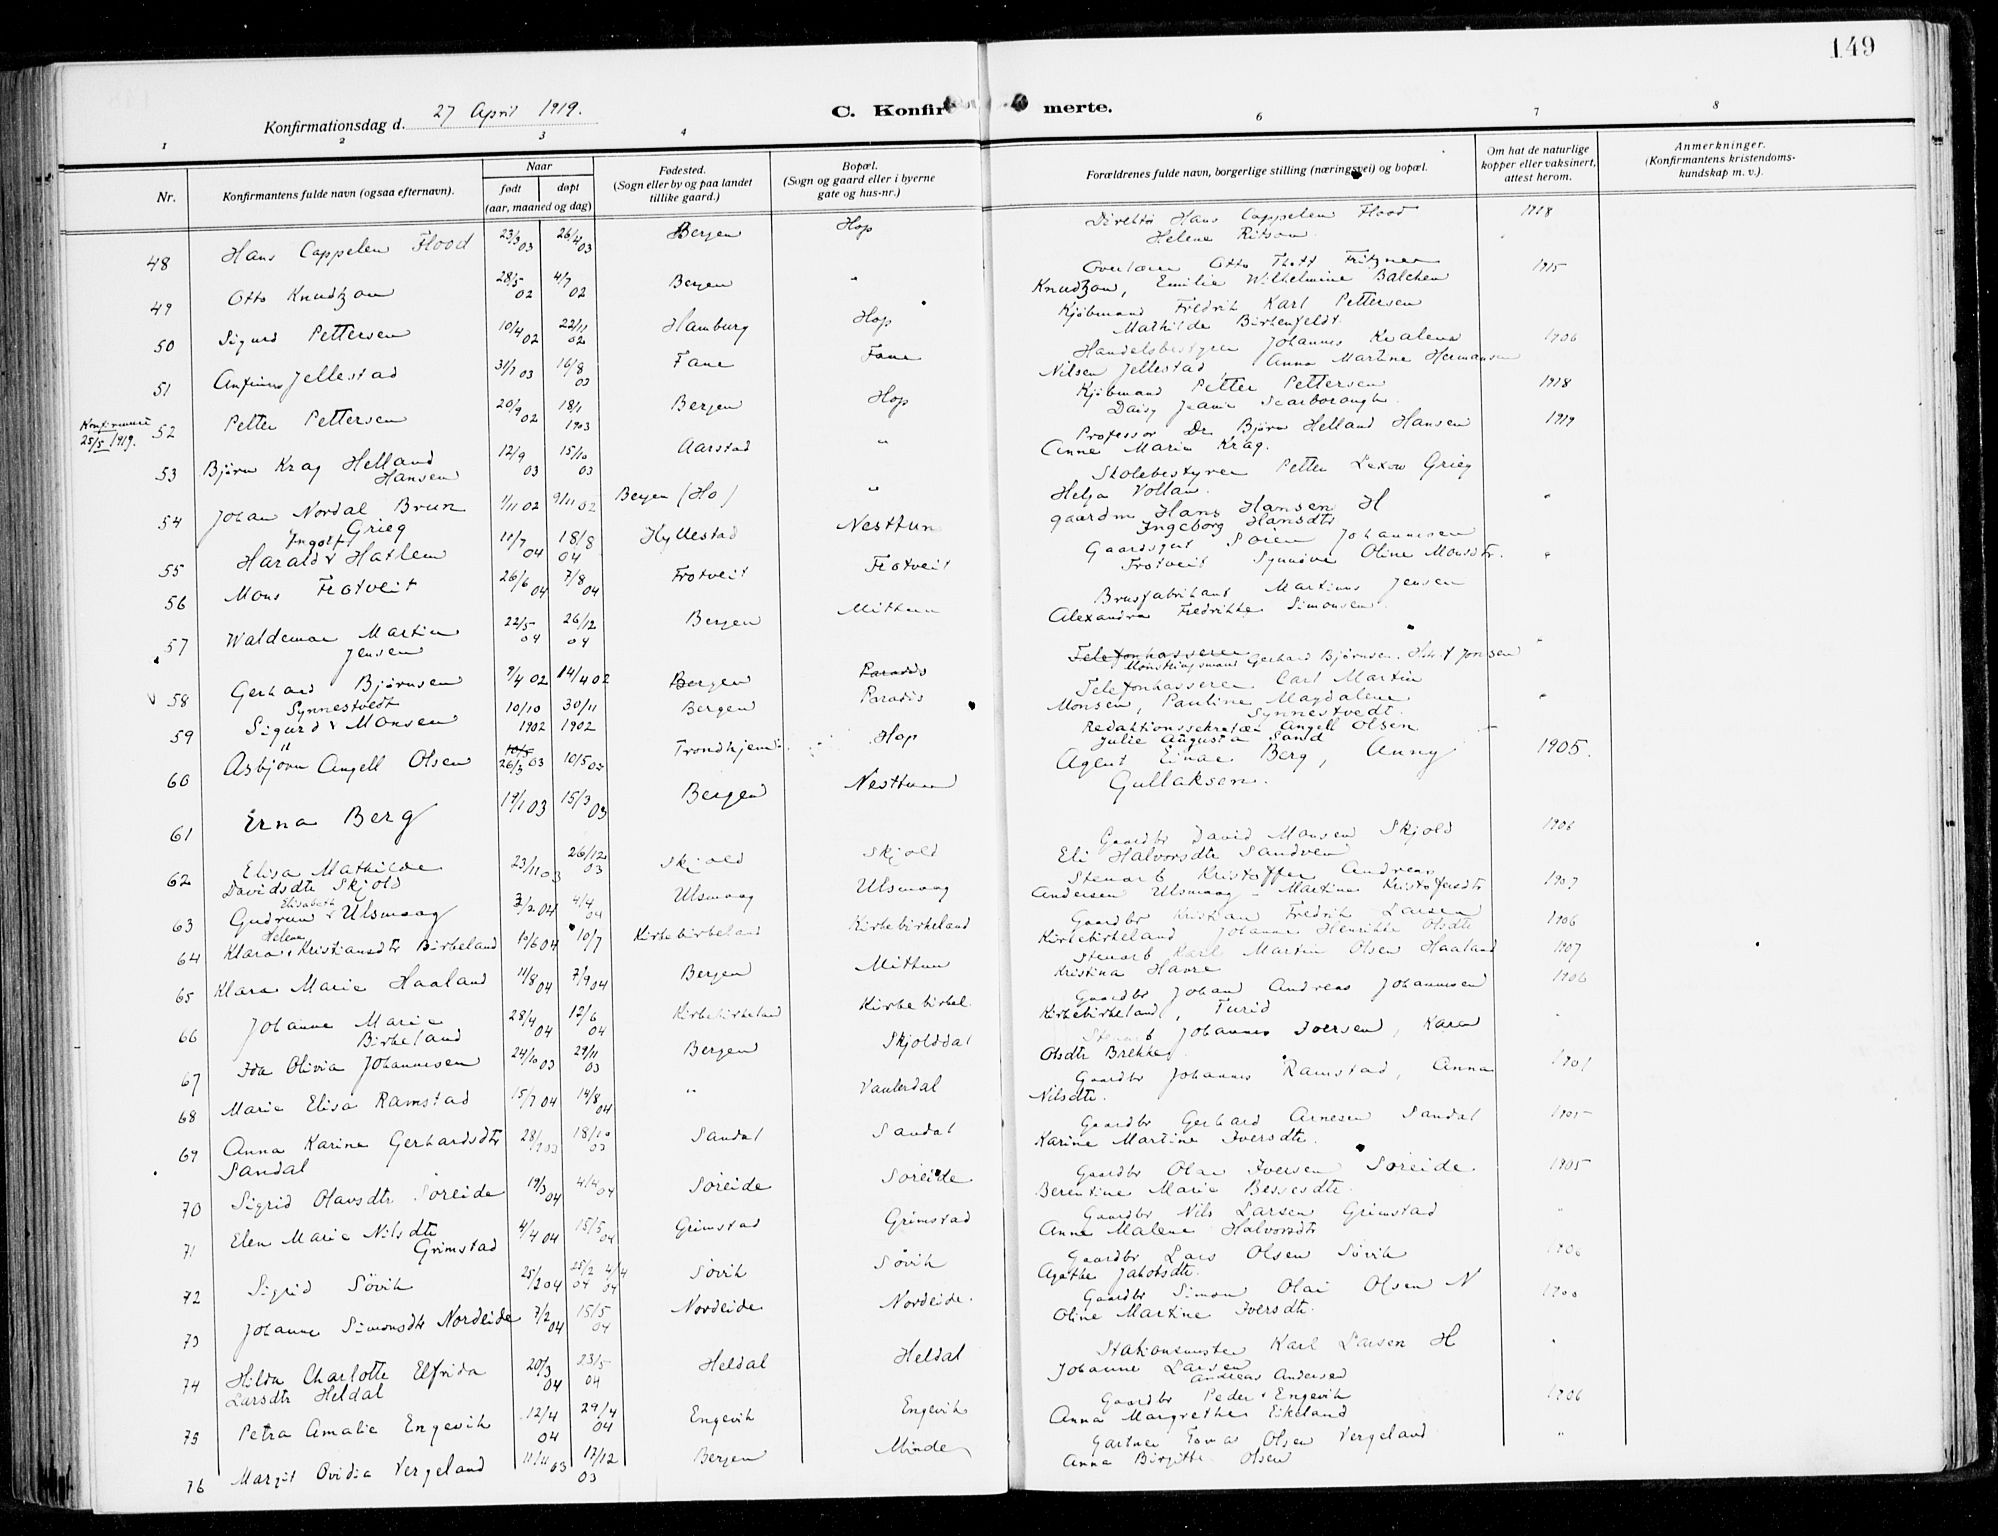 149
Konfirmationsdag d. 27 April 1919.
C. Konfir merte.
1 2 3 4 6 7 8
Nr.
Konfirmantens fulde navn (ogsaa efternavn).
Naar
født døpt
(aar, maaned og dag)
Fødested.
(Sogn eller by og paa landet
tillike gaard.)
Bopæl.
(Sogn og gaard eller i byerne
gate og hus-nr.)
Forældrenes fulde navn, borgerlige stilling (næringsvei) og bopæl.
Om hat de naturlige
kopper eller vaksinert,
attest herom.
Anmerkninger.
(Konfirmantens kristendoms-
kundskap m. v.).
48 Hans Cappelen Flood 23/3 03 26/4 03 Bergen Hop Direktør Hans Cappelen Flood 1918
Helene Ritson
49 Otto Knudtzon 28/5 02 4/7 02 Bergen " Overlærer Otto Thott Fritzner 1915
Knudtzon, Emilie Wilhelmine Balchen
50 Sigurd Pettersen 10/4 02 22/11 02 Hamburg Hop Kjøbmand Fredrik Karl Pettersen
Mathilde Birkenfeldt.
51 Anfinn Jellestad 31/1 03 16/8 03 Fane Fane Handelsbestyrer Johannes Kvalen 1906
Nilsen Jellestad, Anna Martine Hermansen
Konfirmeret
25/5 1919.
52 Petter Pettersen 20/9 02 18/1 1903 Bergen Hop Kjøbmand Petter Pettersen 1918
Daisy Jeanie Scarborough.
53 Bjørn Krag Helland Hansen 12/9 03 15/10 03 Aarstad " Professor Dr. Bjørn Helland Hansen 1919
Anne Marie Krag.
54 Johan Nordal Brun Grieg 1/11 02 9/11 02 Bergen (Ho) " Skolebestyrer Petter Lexow Grieg
Helga Vollan. "
55 Harald Ingolf Hatlem 11/7 04 18/8 04 Hyllestad Nesttun gaardm Hans Hansen H
Ingeborg Hansdtr
56 Mons Frotveit 26/6 04 7/8 04 Frotveit Frotveit Gaardsgut Søren Johannesen
Frotveit Synnøve Oline Monsdtr. "
57 Waldemar Martin Jensen 22/5 04 26/12 04 Bergen Mittun Brusfabrikant Martinus Jensen
Alexandra Fredrikke Simonsen.
58 Gerhard Bjørnsen 9/4 02 14/4 02 Bergen Paradis Telefonkasserer
Mønstringsmand Gerhard Bjørnsen. "
59 Sigurd Synnestvedt Monsen 10/10 1902 30/11 1902 Bergen Paradis Telefonkasserer Carl Martin
Monsen, Pauline Magdalene Synnestvedt. "
60 Asbjørn Angell Olsen 10/5 26/3 03 10/5 03 Trondhjem Hop Redaktionssekretær Angell Olsen
Julie Augusta Sand
61 Erna Berg 17/1 03 15/3 03 Bergen Nesttun Agent Einar Berg, Anny 1905.
Gullaksen.
62 Elisa Mathilde Davidsdtr Skjold 23/11 03 26/12 03 Skjold Skjold Gaardbr David Monsen Skjold 1906
Eli Halvorsdtr Sandven
63 Gudrun Elisabeth Ulsmaag 3/2 04 4/4 04 Ulsmaag Ulsmaag Stenarb Kristoffer Andreas 1907
Andersen Ulsmaag - Martine Kristofersdtr
64 Klara Helene Kristiansdtr Birkeland 19/6 04 10/7 Kirkebirkeland Kirkebirkeland Gaardbr Kristian Fredrik Larsen 1906
Kirkebirkeland Johanne Henrikke Olsdtr
65 Klara Marie Haaland 11/8 04 7/9 04 Bergen Mittun Stenarb Karl Martin Olsen Haaland 1907
Kristina Havre
66 Johanne Marie Birkeland 28/4 04 12/6 04 Kirkebirkeland Kirkebirkel. Gaardbr Johan Andreas Johannesen 1906
Kirkebirkeland, Turid
67 Ida Olivia Johannesen 24/10 03 29/11 03 Bergen Skjolddal Stenarb Johannes Iversen, Kari "
Olsdtr Brekke
68 Marie Elisa Ramstad 15/7 04 14/8 04 " Vanlerdal Gaardbr Johannes Ramstad, Anna
Nilsdtr.
69 Anna Karine Gerhardsdtr Sandal 18/10 03 Sandal Sandal Gaardbr Gerhard Arnesen Sandal 1905
Karine Martine Iversdtr.
70 Sigrid Olavsdtr Søreide 19/3 04 4/4 04 Søreide Søreide Gaardbr Olai Iversen Søreide 1905
Berentine Marie Bessesdtr.
71 Elen Marie Nilsdtr Grimstad 4/4 04 15/5 04 Grimstad Grimstad Gaardbr Nils Larsen Grimstad "
Anne Malene Halvorsdtr
72 Sigrid Søvik 25/2 04 25/2 04 4/4 04 Søvik Søvik Gaardbr Lars Olsen Søvik 1906
Agathe Jakobsdtr.
73 Johanne Simonsdtr Nordeide 7/2 04 15/5 04 Nordeide Nordeide. Gaardbr Simon Olai Olsen N
Oline Martine Iversdtr.
74 Hilda Charlotte Elfrida Larsdtr Heldal 20/3 04 23/5 04 Heldal Heldal Stationsmester Karl Larsen H "
Johanne Larsen
75 Petra Amalie Engevik 12/4 04 29/4 04 Engevik Engevik Gaardbr Peder Andreas Andersen Engevik 1906
Anna Margrethe Eikeland
76 Margit Ovidia Vergeland 11/11 03 17/12 03 Bergen Minde Gartner Tomas Olsen Vergeland "
Anna Birgitte Olsen